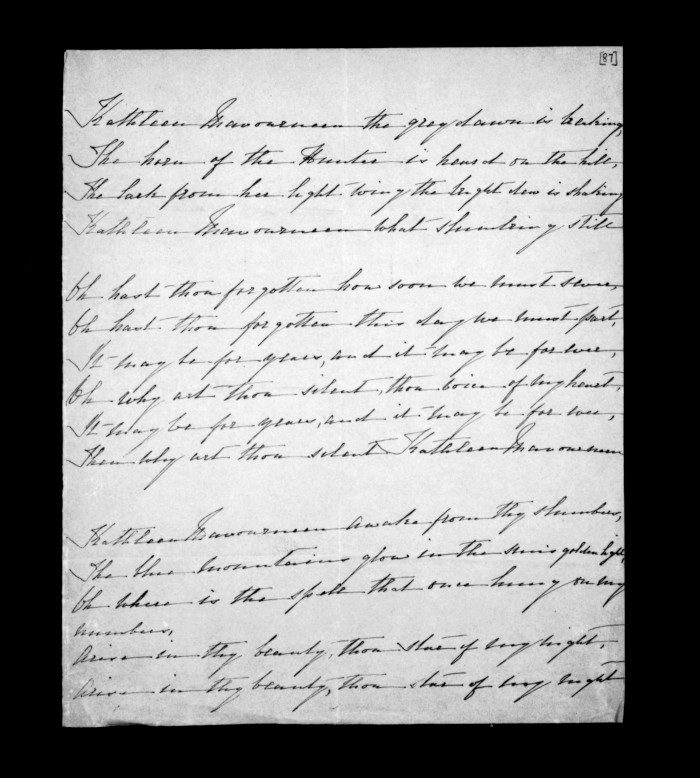 [87]
Kathleen Mavourneen the grey dawn is breaking,
The horn of the Hunter is heard on the hill,
The lark from her light wing the bright dew is shaking
Kathleen Mavourneen what slumbring still
Oh hast thou forgotten how soon we must sever,
Oh hast thou forgotten this day we must part,
It may be for years, and it may be for ever,
Oh why art thou silent, thou voice of my heart,
It may be for years, and it may be for ever,
Then why art thou silent Kathleen Mavourneen
Kathleen Mavourneen awake from thy slumbers,
The blue mountains glow in the sun's golden light,
Oh where is the spell that once hung on my
numbers,
Arise in thy beauty, thou star of my night,
Arise in thy beauty, thou star of my night